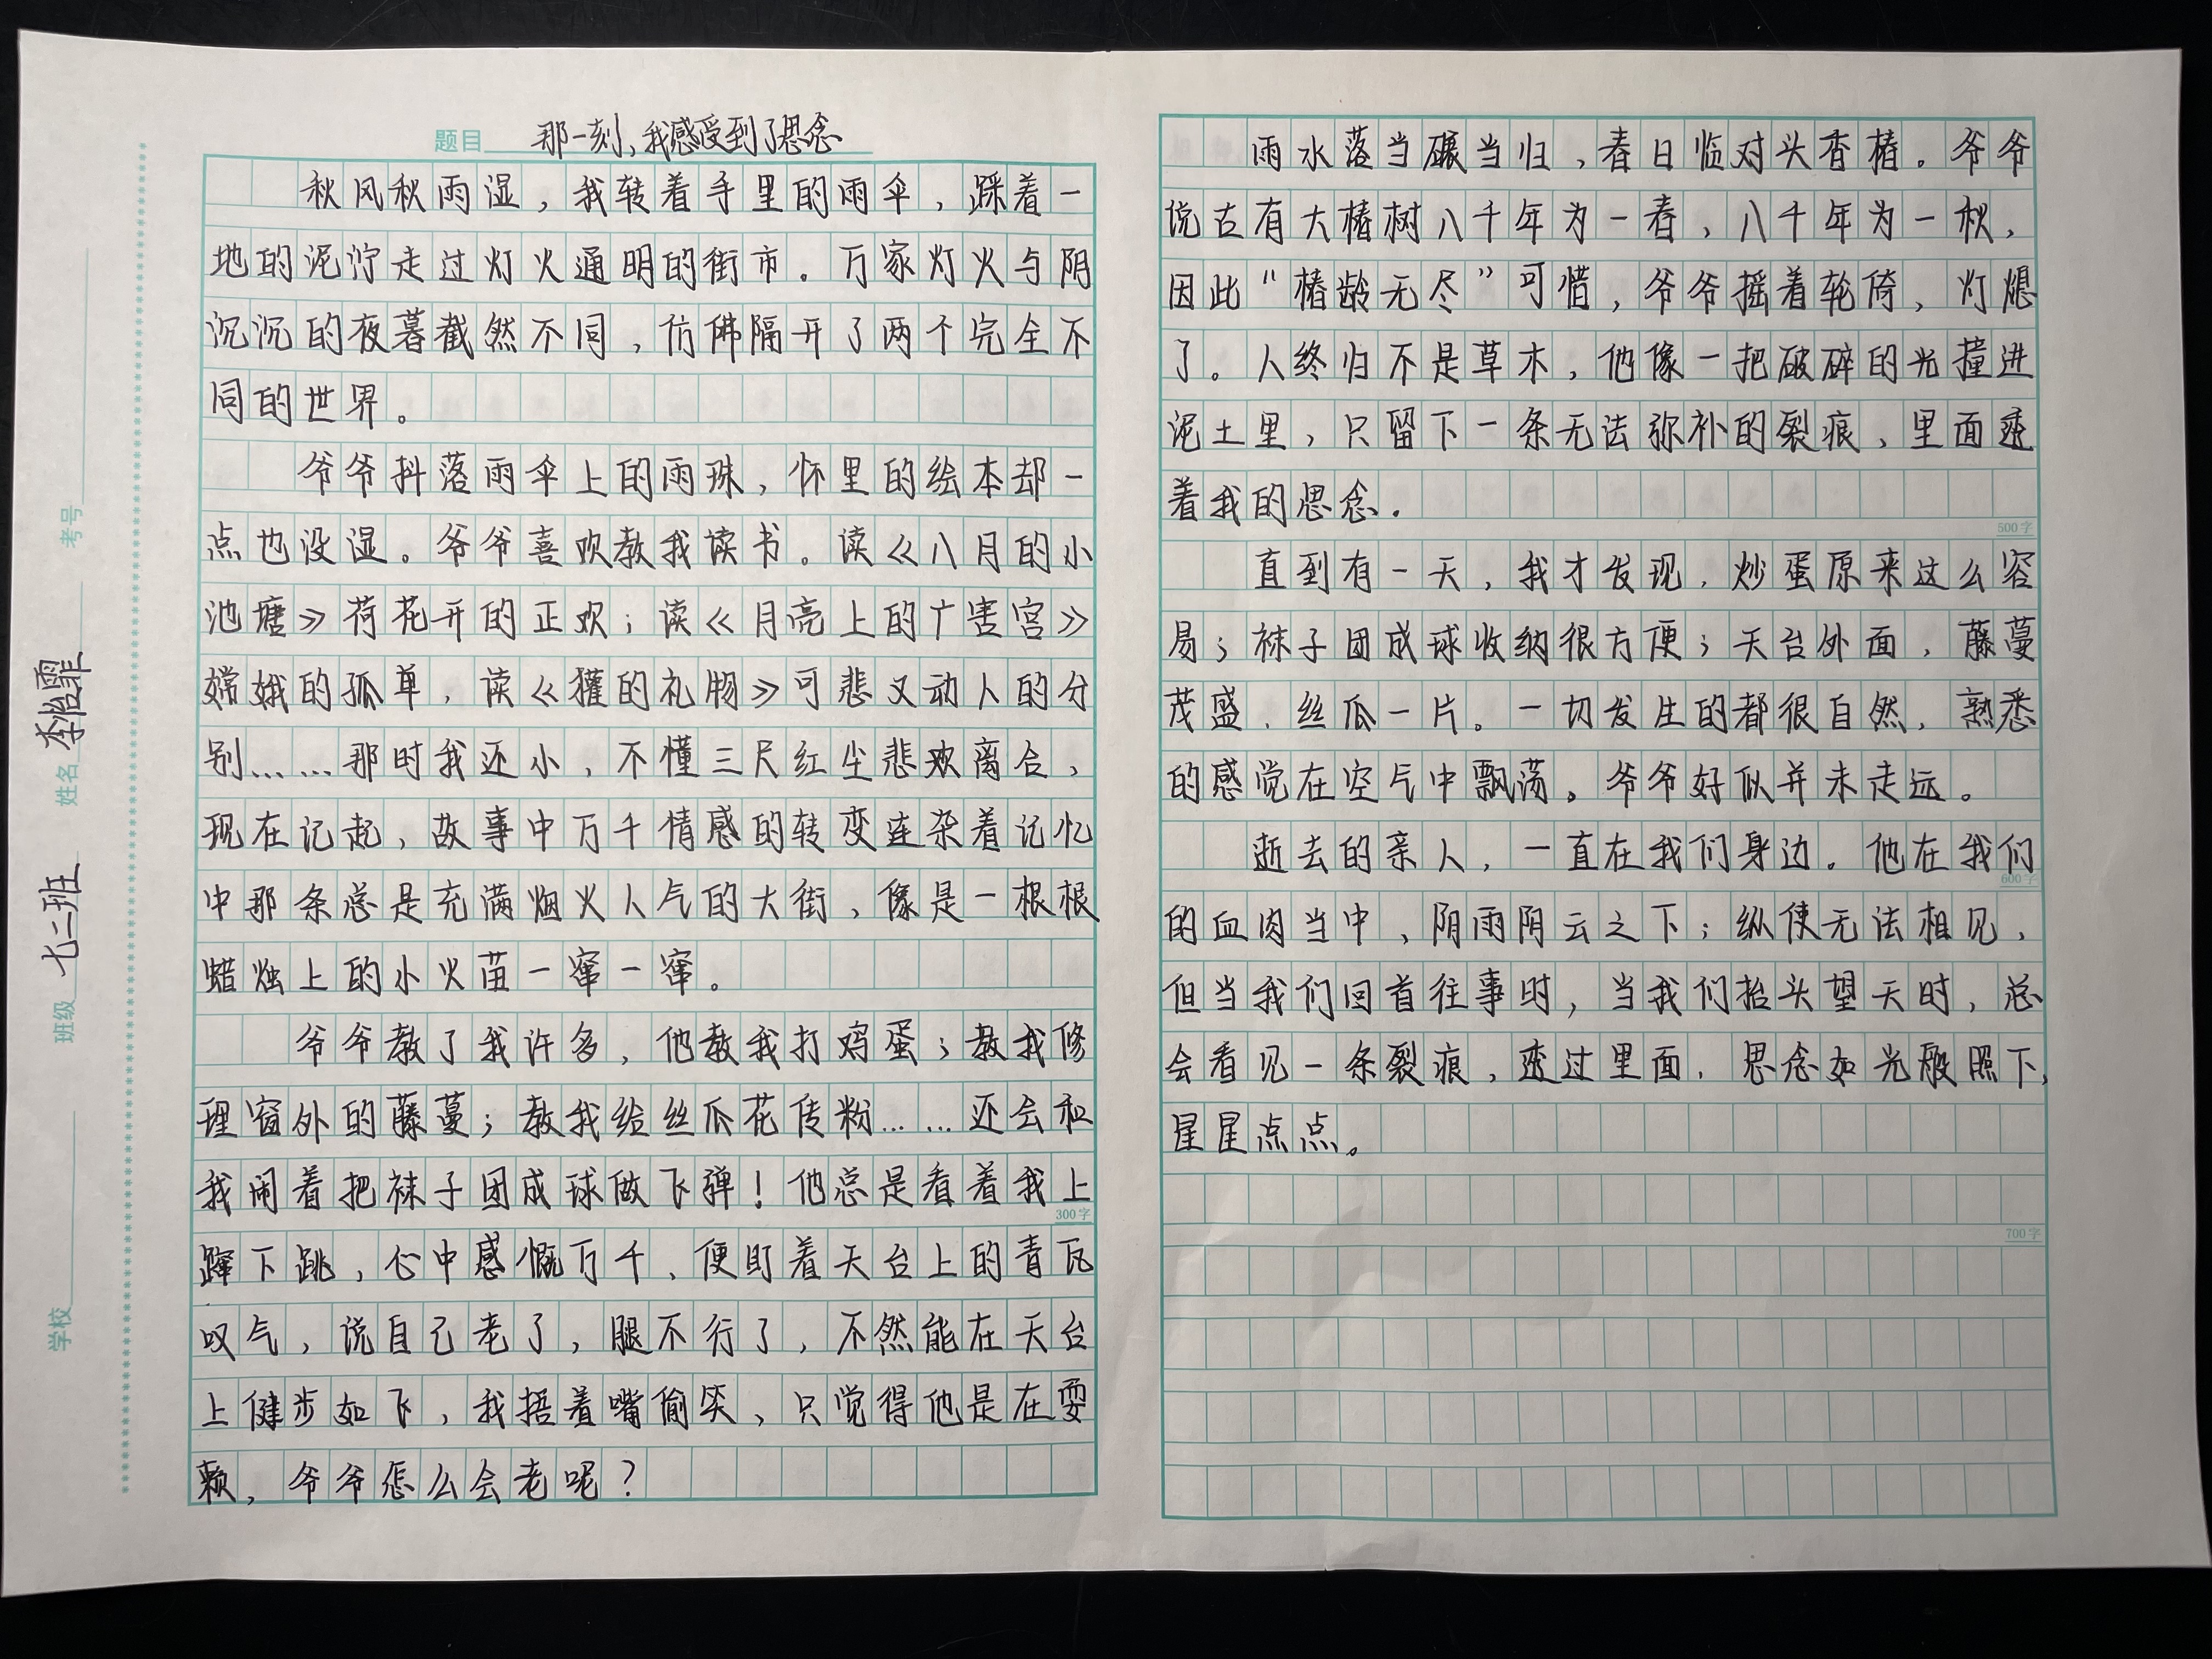 题目 那一刻，我感受到了思念
秋风秋雨湿，我转着手里的雨伞，踩着一
地的泥泞走过灯火通明的街市。万家灯火与阴
沉沉的夜暮截然不同，仿佛隔开了两个完全不
同的世界。
爷爷抖落雨伞上的雨珠，怀里的绘本却一
点也没湿。爷爷喜欢教我读书。读《八月的小
池塘》荷花开的正欢；读《月亮上的广害宫》
嫦娥的孤单，读《獾的礼物》可悲又动人的分
别……那时我还小，不懂三尺红尘悲欢离合，
现在记起，故事中万千情感的转变连杂着记忆
中那条总是充满烟火人气的大街，像是一根根
蜡烛上的小火苗一窜一窜。
爷爷教了我许多，他教我打鸡蛋；教我修
理窗外的藤蔓；教我给丝瓜花传粉……还会和
我闹着把袜子团成球做飞弹！他总是看着我上
蹿下跳，心中感慨万千，便盯着天台上的青瓦
叹气，说自己老了，腿不行了，不然能在天台
上健步如飞，我捂着嘴偷笑，只觉得他是在耍
赖，爷爷怎么会老呢？
300字
雨水落当碾当归，春日临对头香椿。爷爷
说古有大椿树八千年为一春，八千年为一秋，
因此“椿龄无尽”可惜，爷爷摇着轮倚，灯熄
了。人终归不是草木，他像一把破碎的光撞进
泥土里，只留下一条无法弥补的裂痕，里面透
着我的思念.
500字
直到有一天，我才发现，炒蛋原来这么容
易；袜子团成球收纳很方便；天台外面，藤蔓
茂盛，丝瓜一片。一切发生的都很自然，熟悉
的感觉在空气中飘荡。爷爷好似并未走远。
逝去的亲人，一直在我们身边。他在我们
600字
的血肉当中，阴雨阴云之下；纵使无法相见，
但当我们回首往事时，当我们抬头望天时，总
会看见一条裂痕，透过里面，思念如光般照下，
星星点点。
700字
学校
班级 七二班
姓名 李怡霏
考号